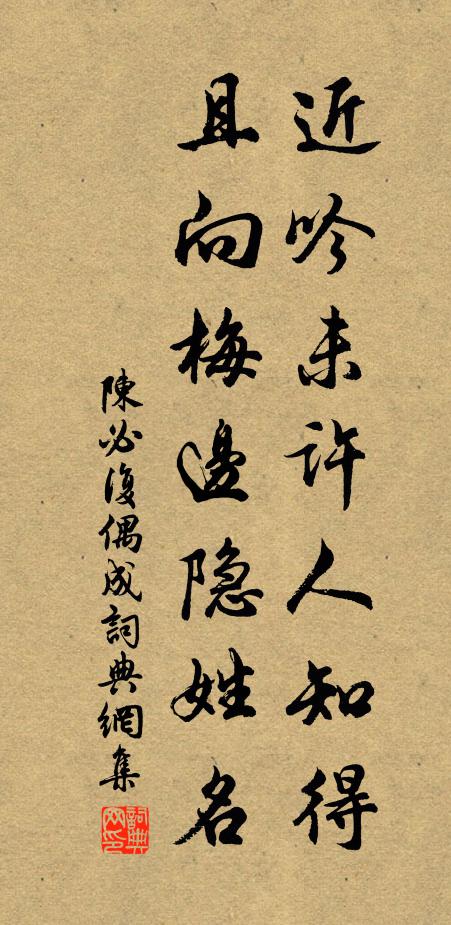 近吟未许人知得
且向梅邊隐姓名
陳必復偶成詞典網集
詞典网印